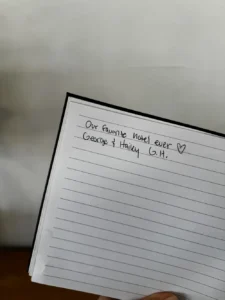 Our favorite hotel ever ♡
George & Hailey G.H.